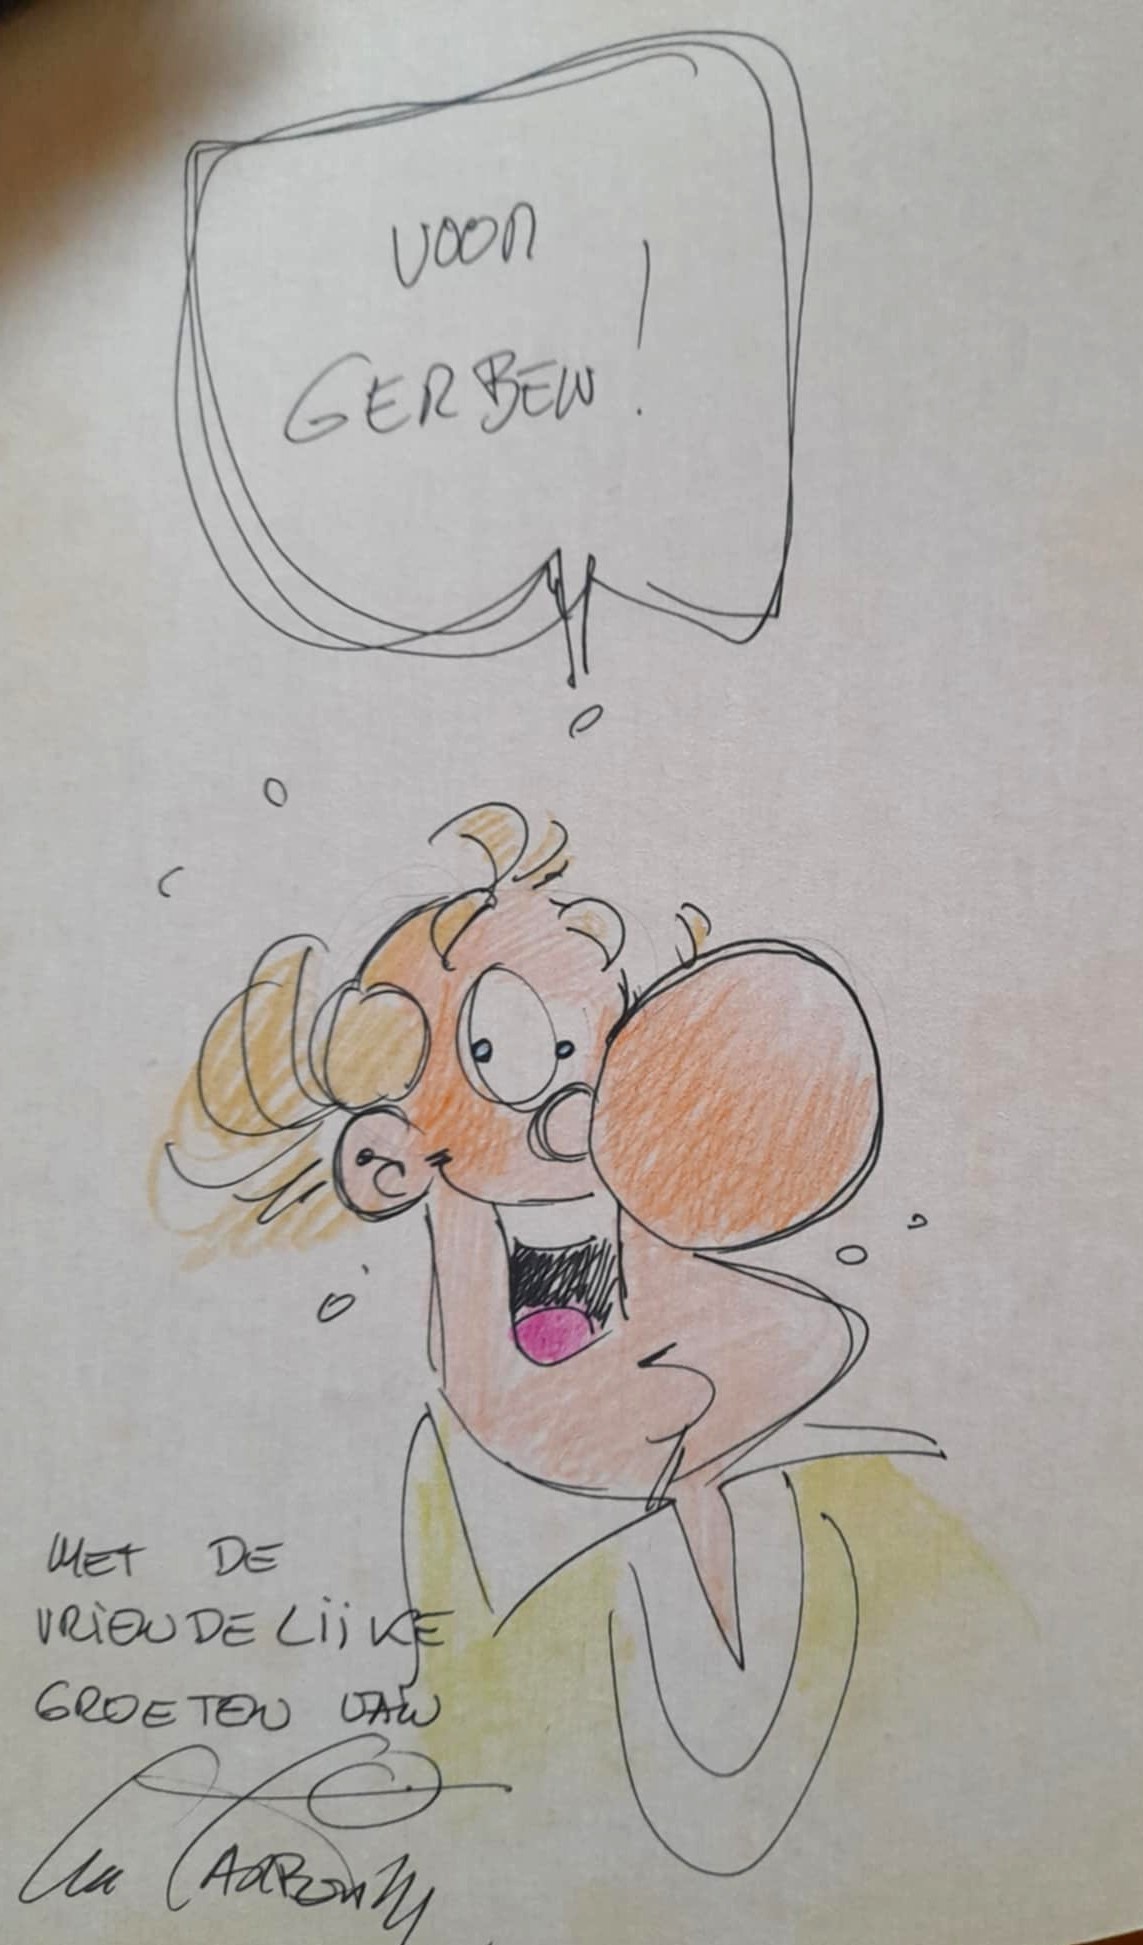 VOOR
GERBEN!
MET DE
VRIENDELIJKE
GROETEN VAN